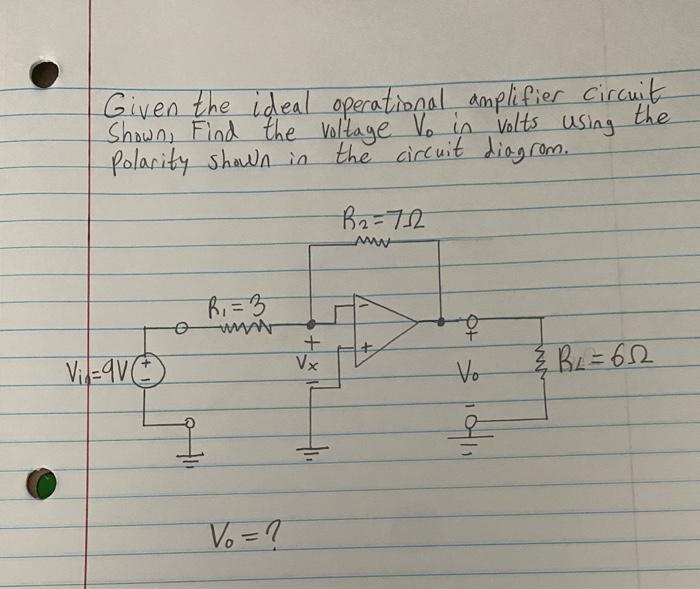 Given the ideal operational amplifier circuit
Shown, Find the voltage Vo in volts using the
Polarity shown in the circuit diagram.
R2=7Ω
R1=3
-
+
Vin=9V
+
-
+
Vx
-
+
Vo
-
RL=6Ω
Vo=?